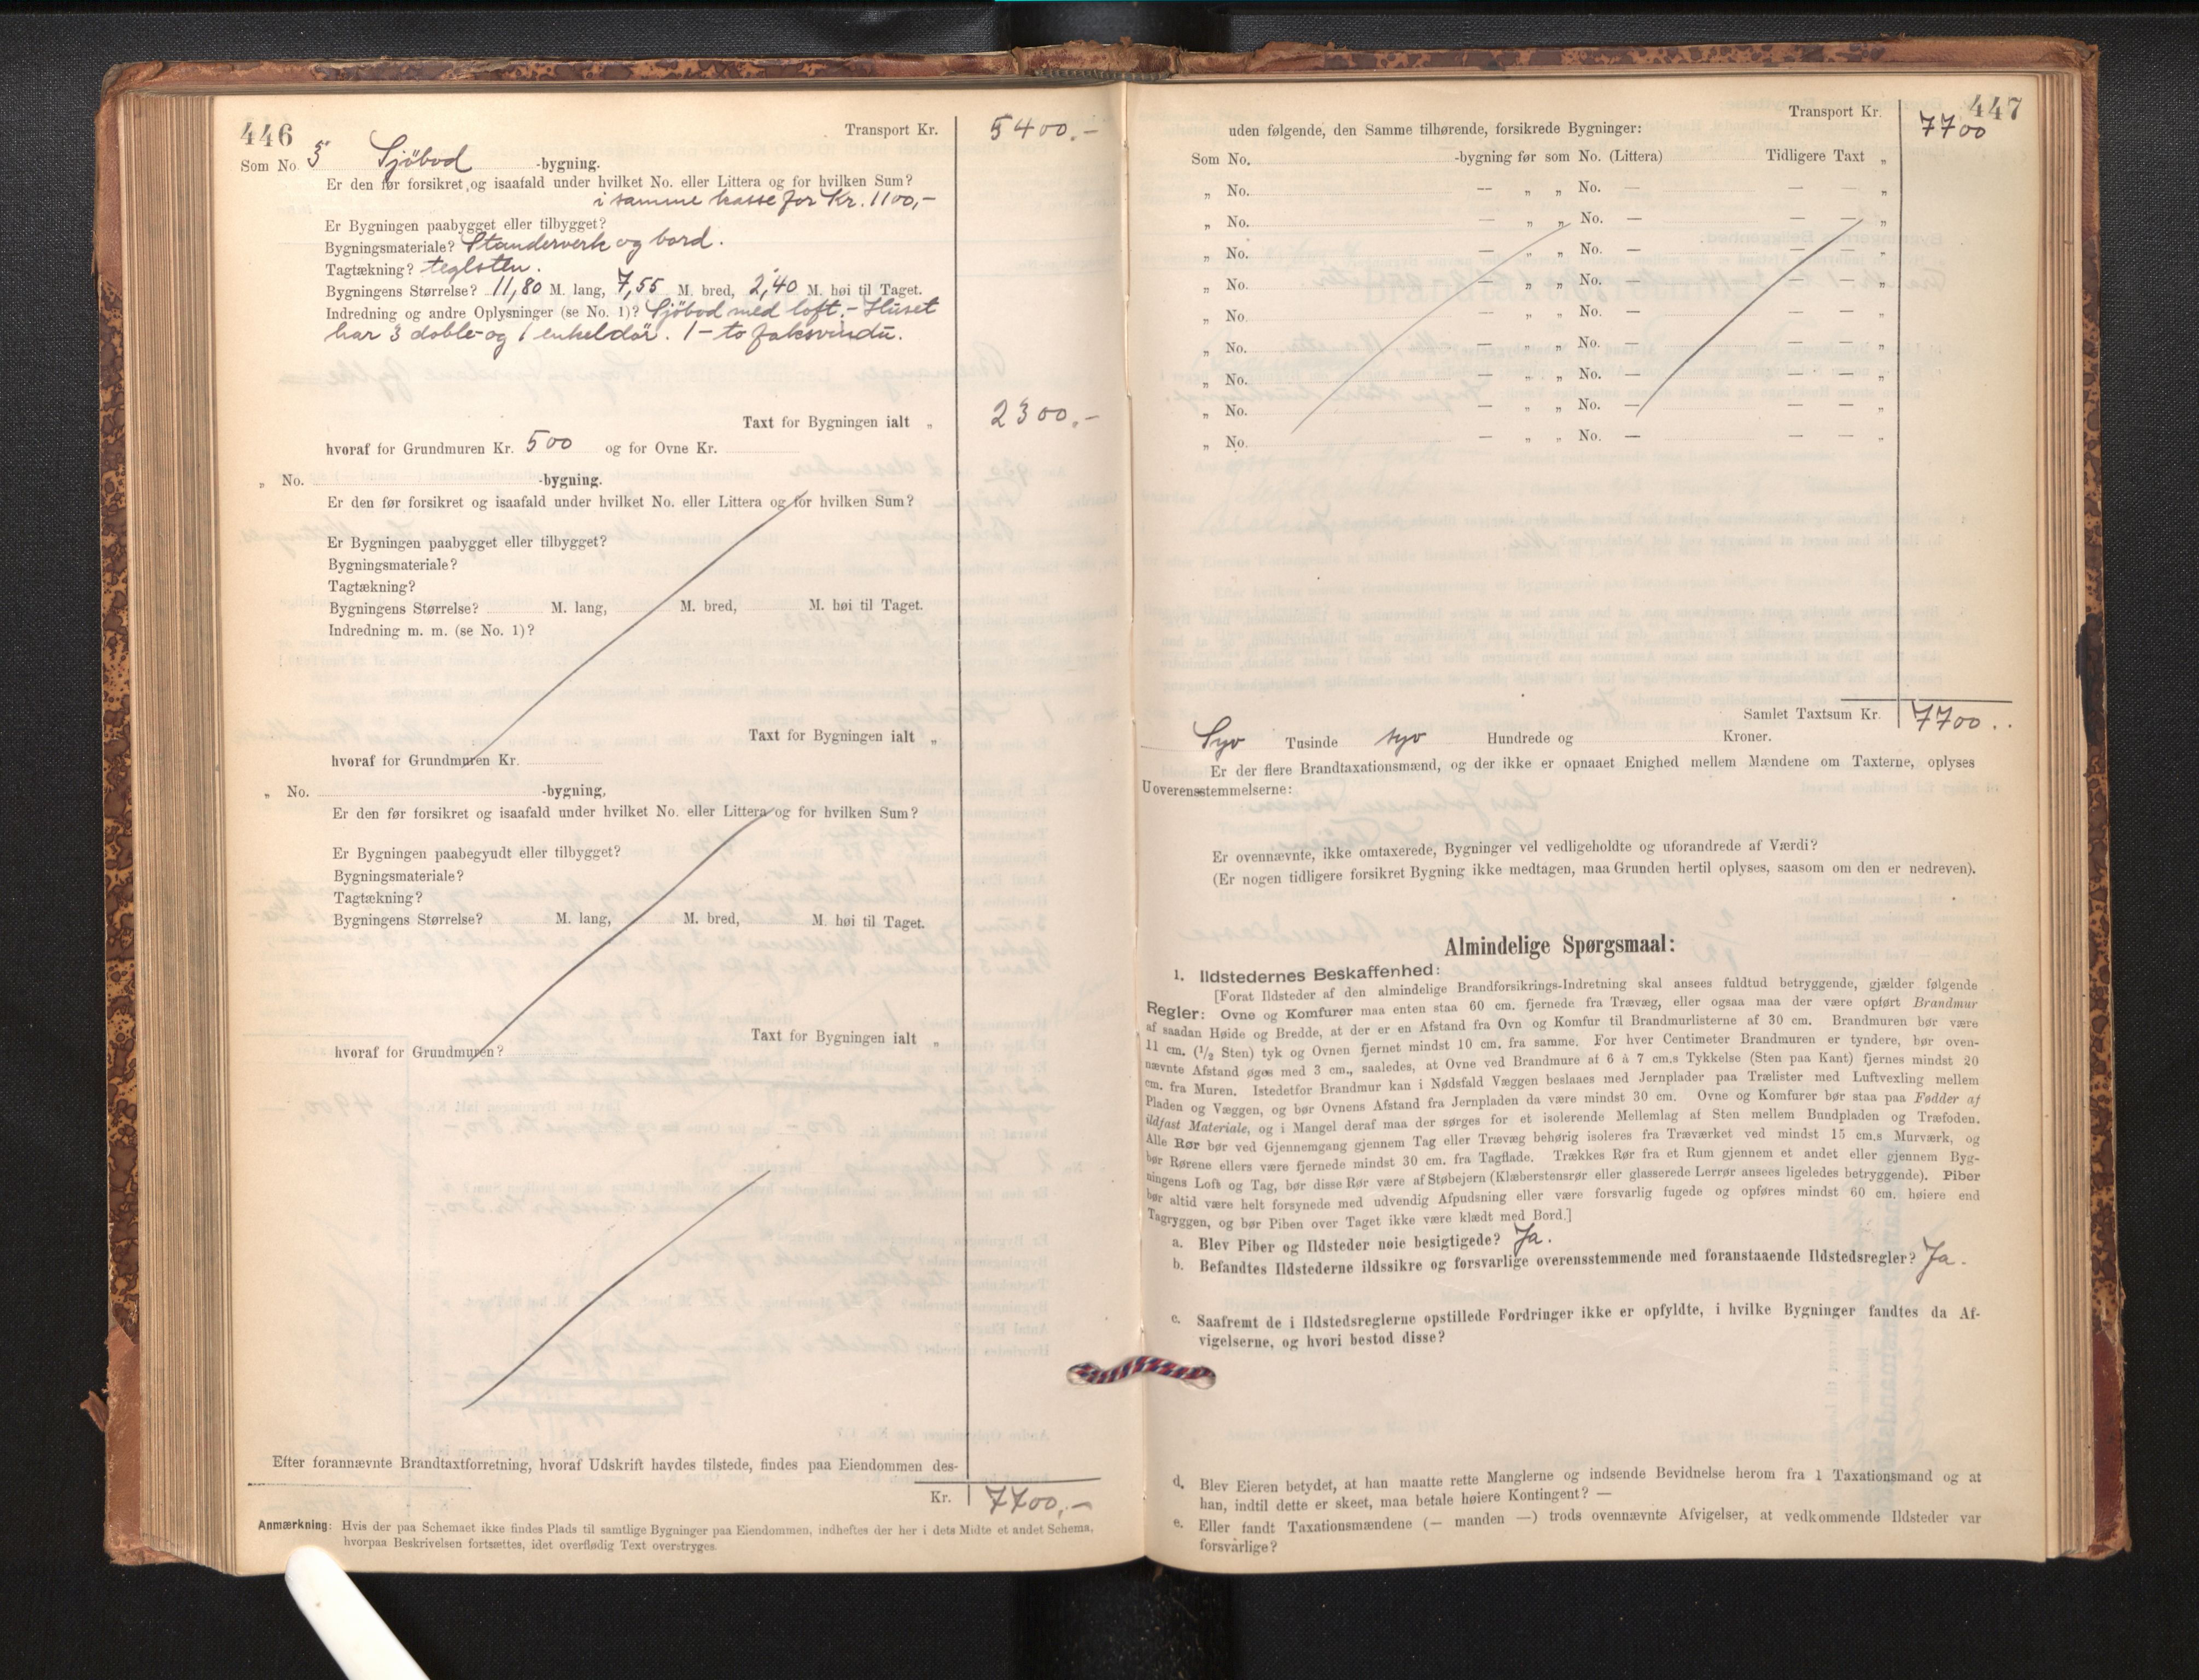 446
Transport Kr. 5400.-
Som No. 3 Sjöbod -bygning.
Er den før forsikret og isaafald under hvilket No. eller Littera og for hvilken Sum?
i samme kasse for Kr. 1100,-
Er Bygningen paabygget eller tilbygget?
Bygningsmateriale? Standerverk og bord.
Tagtækning? teglsten.
Bygningens Størrelse? 11,80 M. lang, 7,55 M. bred, 2,40 M. høi til Taget.
Indredning og andre Oplysninger (se No. 1)? Sjöbod med loft.- Huset
har 3 doble- og 1 enkeldör. 1 - to faksvindu.
Taxt for Bygningen ialt „ 2300,-
hvoraf for Grundmuren Kr. 500 og for Ovne Kr.
„ No. -bygning.
Er den før forsikret og isaafald under hvilket No. eller Littera og for hvilken Sum?
Er Bygningen paabygget eller tilbygget?
Bygningsmateriale?
Tagtækning?
Bygningens Størrelse? M. lang, M. bred, M. høi til Taget.
Indredning m. m. (se No. 1)?
Taxt for Bygningen ialt „
hvoraf for Grundmuren Kr.
„ No. -bygning,
Er den før forsikret og isaafald under hvilket No. eller Littera og for hvilken Sum?
Er Bygningen paabegyudt eller tilbygget?
Bygningsmateriale?
Tagtækning?
Bygningens Størrelse? M. lang, M. bred, M. høi til Taget.
Taxt for Bygningen ialt „
hvoraf for Grundmuren?
Efter forannævnte Brandtaxtforretning, hvoraf Udskrift havdes tilstede, findes paa Eiendommen des-
Kr. 7700,-
Anmærkning: Hvis der paa Schemaet ikke findes Plads til samtlige Bygninger paa Eiendommen, indheftes der her i dets Midte et andet Schema,
hvorpaa Beskrivelsen fortsættes, idet overflødig Text overstryges.
447
Transport Kr. 7700
uden følgende, den Samme tilhørende, forsikrede Bygninger:
Som No. -bygning før som No. (Littera) Tidligere Taxt „
„ No. — „ „ No. — — — „
„ No. — „ „ No. — — — „
„ No. — „ „ No. — — — „
„ No. — „ „ No. — — — „
„ No. — „ „ No. — — — „
„ No. — „ „ No. — — — „
„ No. — „ „ No. — — — „
„ No. — „ „ No. — — — „
„ No. — „ „ No. — — — „
Samlet Taxtsum Kr. 7700..
Syv Tusinde syv Hundrede og Kroner.
Er der flere Brandtaxationsmænd, og der ikke er opnaaet Enighed mellem Mændene om Taxterne, oplyses
Uoverensstemmelserne:
Er ovennævnte, ikke omtaxerede, Bygninger vel vedligeholdte og uforandrede af Værdi?
(Er nogen tidligere forsikret Bygning ikke medtagen, maa Grunden hertil oplyses, saasom om den er nedreven).
Almindelige Spørgsmaal:
1. Ildstedernes Beskaffenhed:
[Forat Ildsteder af den almindelige Brandforsikrings-Indretning skal ansees fuldtud betryggende, gjælder følgende
Regler: Ovne og Komfurer maa enten staa 60 cm. fjernede fra Trævæg, eller ogsaa maa der være opført Brandmur
af saadan Høide og Bredde, at der er en Afstand fra Ovn og Komfur til Brandmurlisterne af 30 cm. Brandmuren bør være
11 cm. (1/2 Sten) tyk og Ovnen fjernet mindst 10 cm. fra samme. For hver Centimeter Brandmuren er tyndere, bør oven-
nævnte Afstand øges med 3 cm., saaledes, at Ovne ved Brandmure af 6 à 7 cm.s Tykkelse (Sten paa Kant) fjernes mindst 20
cm. fra Muren. Istedetfor Brandmur kan i Nødsfald Væggen beslaaes med Jernplader paa Trælister med Luftvexling mellem
Pladen og Væggen, og bør Ovnens Afstand fra Jernpladen da være mindst 30 cm. Ovne og Komfurer bør staa paa Fødder af
ildfast Materiale, og i Mangel deraf maa der sørges for et isolerende Mellemlag af Sten mellem Bundpladen og Træfoden.
Alle Rør bør ved Gjennemgang gjennem Tag eller Trævæg behørig isoleres fra Træværket ved mindst 15 cm.s Murværk, og
bør Rørene ellers være fjernede mindst 30 cm. fra Tagflade. Trækkes Rør fra et Rum gjennem et andet eller gjennem Byg-
ningens Loft og Tag, bør disse Rør være af Støbejern (Klæberstensrør eller glasserede Lerrør ansees ligeledes betryggende). Piber
bør altid være helt forsynede med udvendig Afpudsning eller være forsvarlig fugede og opføres mindst 60 cm. høiere end
Tagryggen, og bør Piben over Taget ikke være klædt med Bord.]
a. Blev Piber og Ildsteder nøie besigtigede? Ja.
b. Befandtes Ildstederne ildssikre og forsvarlige overensstemmende med foranstaaende Ildstedsregler? Ja.
c. Saafremt de i Ildstedsreglerne opstillede Fordringer ikke er opfyldte, i hvilke Bygninger fandtes da Af-
vigelserne, og hvori bestod disse?
d. Blev Eieren betydet, at han maatte rette Manglerne og indsende Bevidnelse herom fra 1 Taxationsmand og at
han, indtil dette er skeet, maa betale høiere Kontingent? —
e. Eller fandt Taxationsmændene (— manden —) trods ovennævnte Afvigelser, at vedkommende Ildsteder var
forsvarlige?